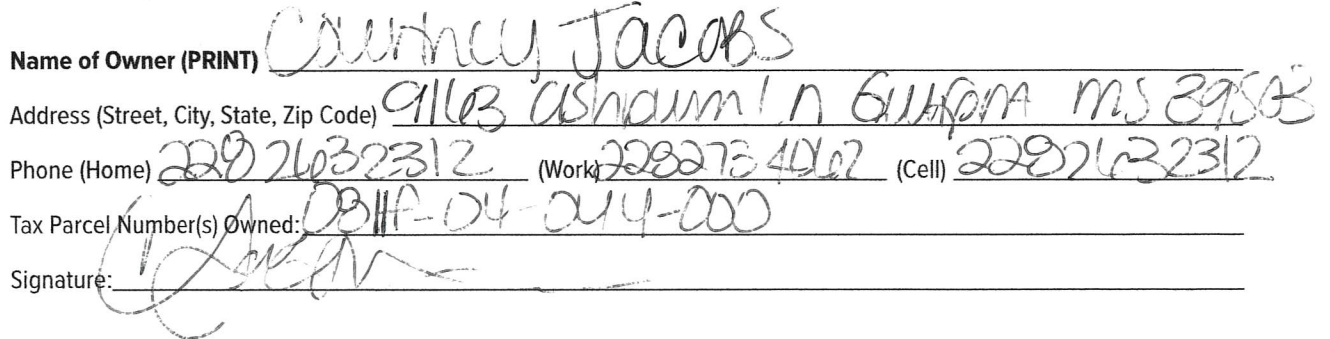 Name of Owner (PRINT) Courtney Jacobs
Address (Street, City, State, Zip Code) 9163 ashawn ln Gulfport MS 39503
Phone (Home) 2282632312 (Work) 228273 4062 (Cell) 2282632312
Tax Parcel Number(s) Owned: 0811F-04-044-000
Signature: